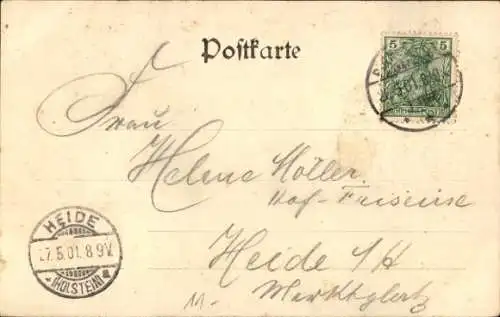 Postkarte
5
Frau
Helene Möller
Hof-Friseuse
Heide i/H
Marktplatz
HEIDE
27.5.01.8-9V.
(HOLSTEIN)